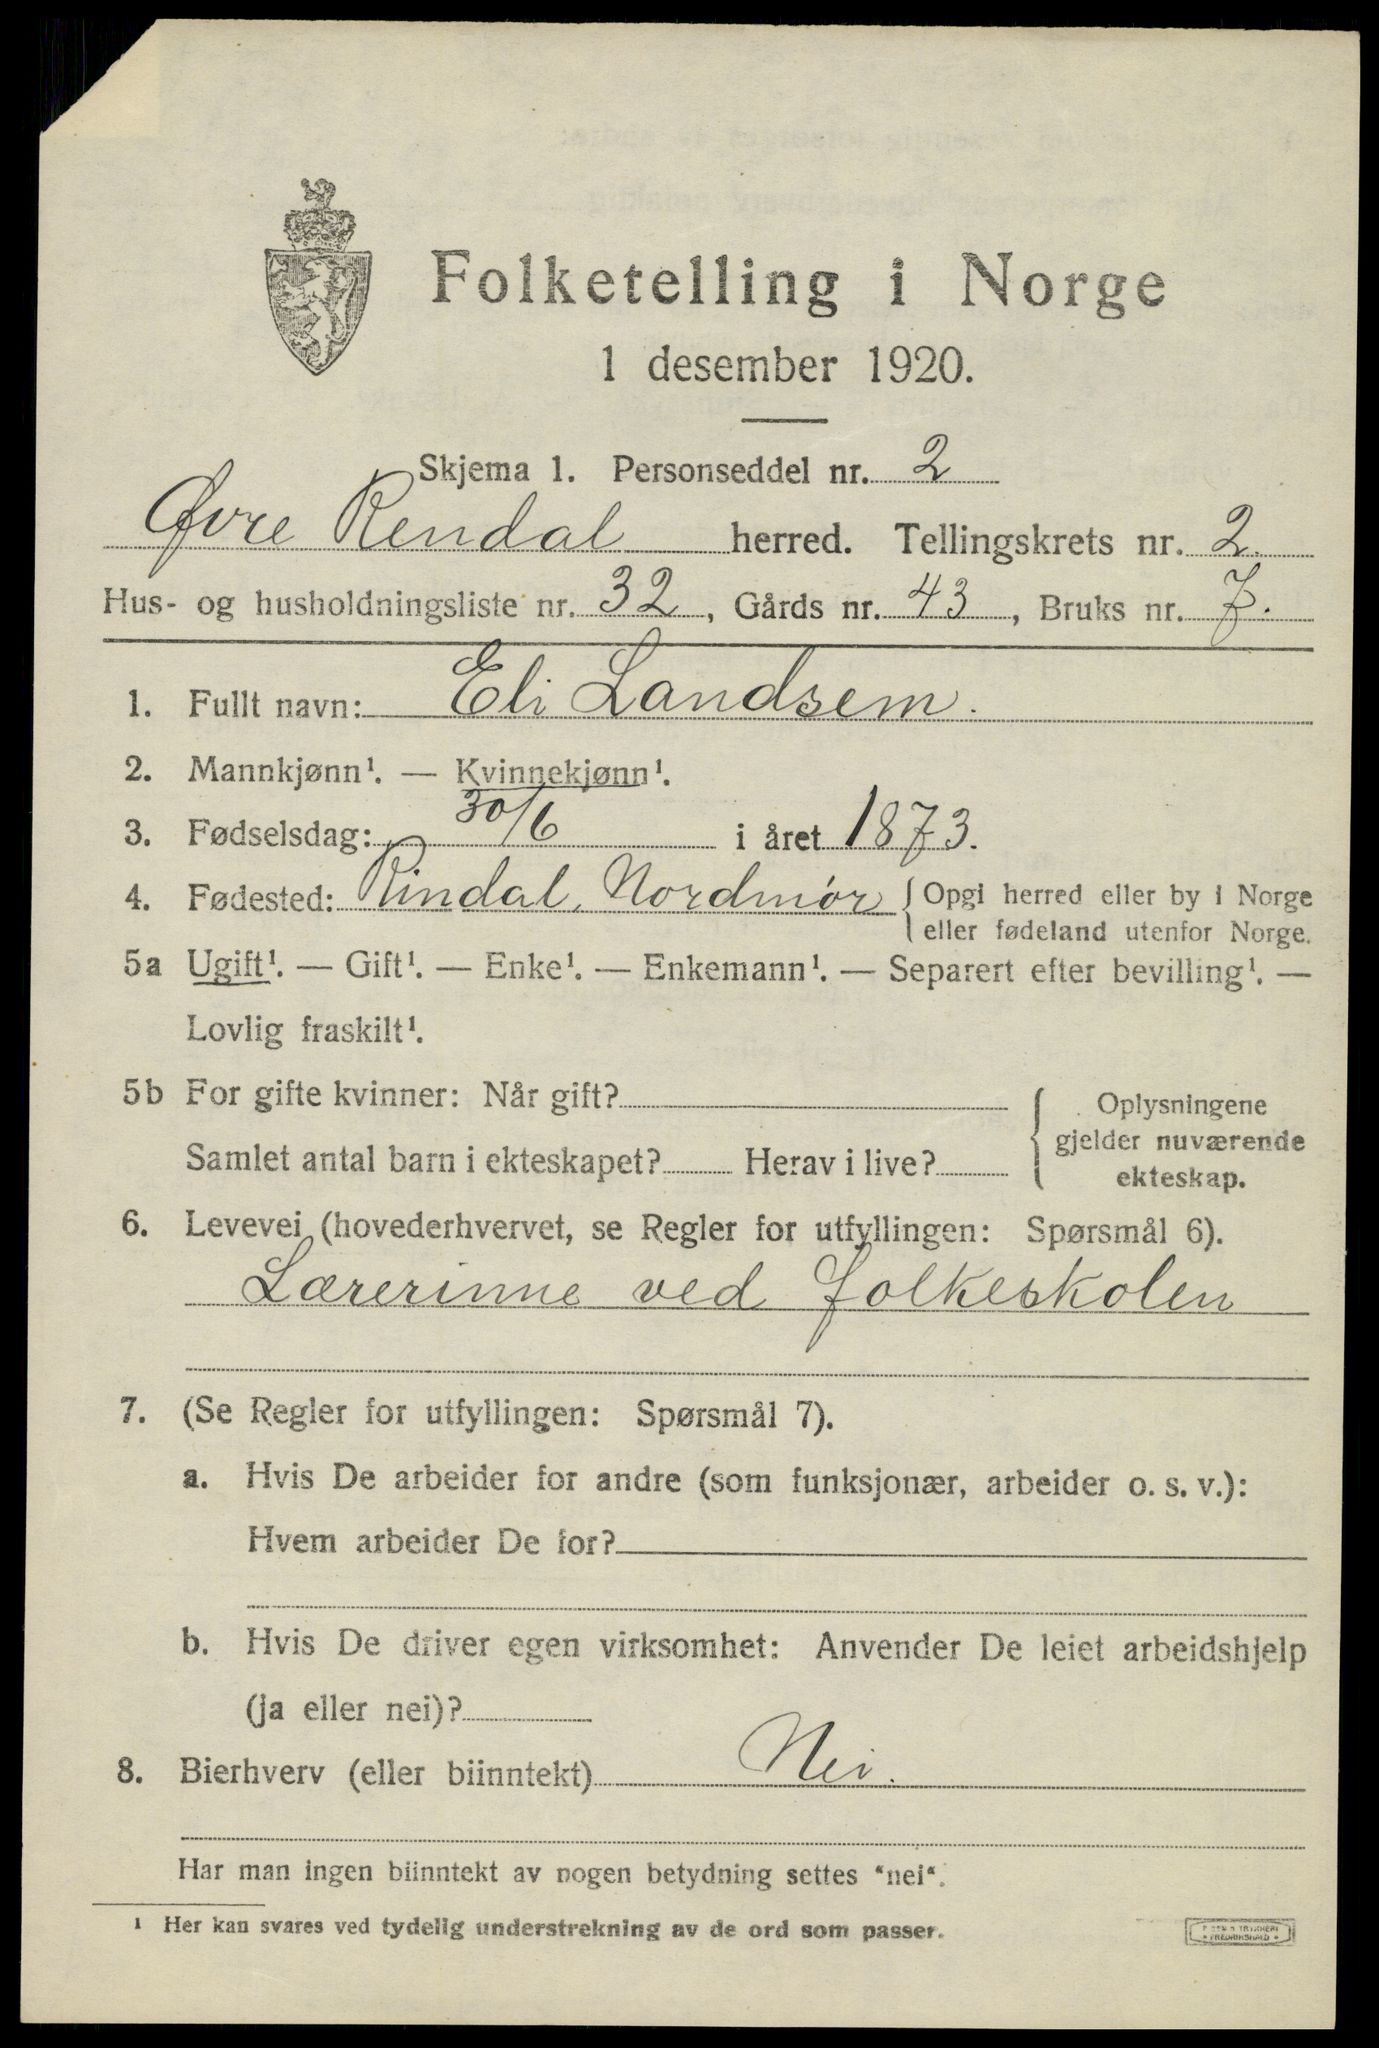 Folketelling i Norge
1 desember 1920.
Skjema 1. Personseddel nr. 2
Øvre Rendal herred. Tellingskrets nr. 2.
Hus- og husholdningsliste nr. 32, Gårds nr. 43, Bruks nr. 7.
1. Fullt navn: Eli Landsem.
2. Mannkjønn¹. — Kvinnekjønn¹.
3. Fødselsdag: 30/6 i året 1873.
4. Fødested: Rindal, Nordmør { Opgi herred eller by i Norge
eller fødeland utenfor Norge.
5a Ugift¹. — Gift¹. — Enke¹. — Enkemann¹. — Separert efter bevilling¹. —
Lovlig fraskilt¹.
5b For gifte kvinner: Når gift?
Samlet antal barn i ekteskapet? Herav i live?
{ Oplysningene
gjelder nuværende
ekteskap.
6. Levevei (hovederhvervet, se Regler for utfyllingen: Spørsmål 6).
Lærerinne ved folkeskolen
7. (Se Regler for utfyllingen: Spørsmål 7).
a. Hvis De arbeider for andre (som funksjonær, arbeider o. s. v.):
Hvem arbeider De for?
b. Hvis De driver egen virksomhet: Anvender De leiet arbeidshjelp
(ja eller nei)?
8. Bierhverv (eller biinntekt) Nei.
Har man ingen biinntekt av nogen betydning settes "nei".
¹ Her kan svares ved tydelig understrekning av de ord som passer.